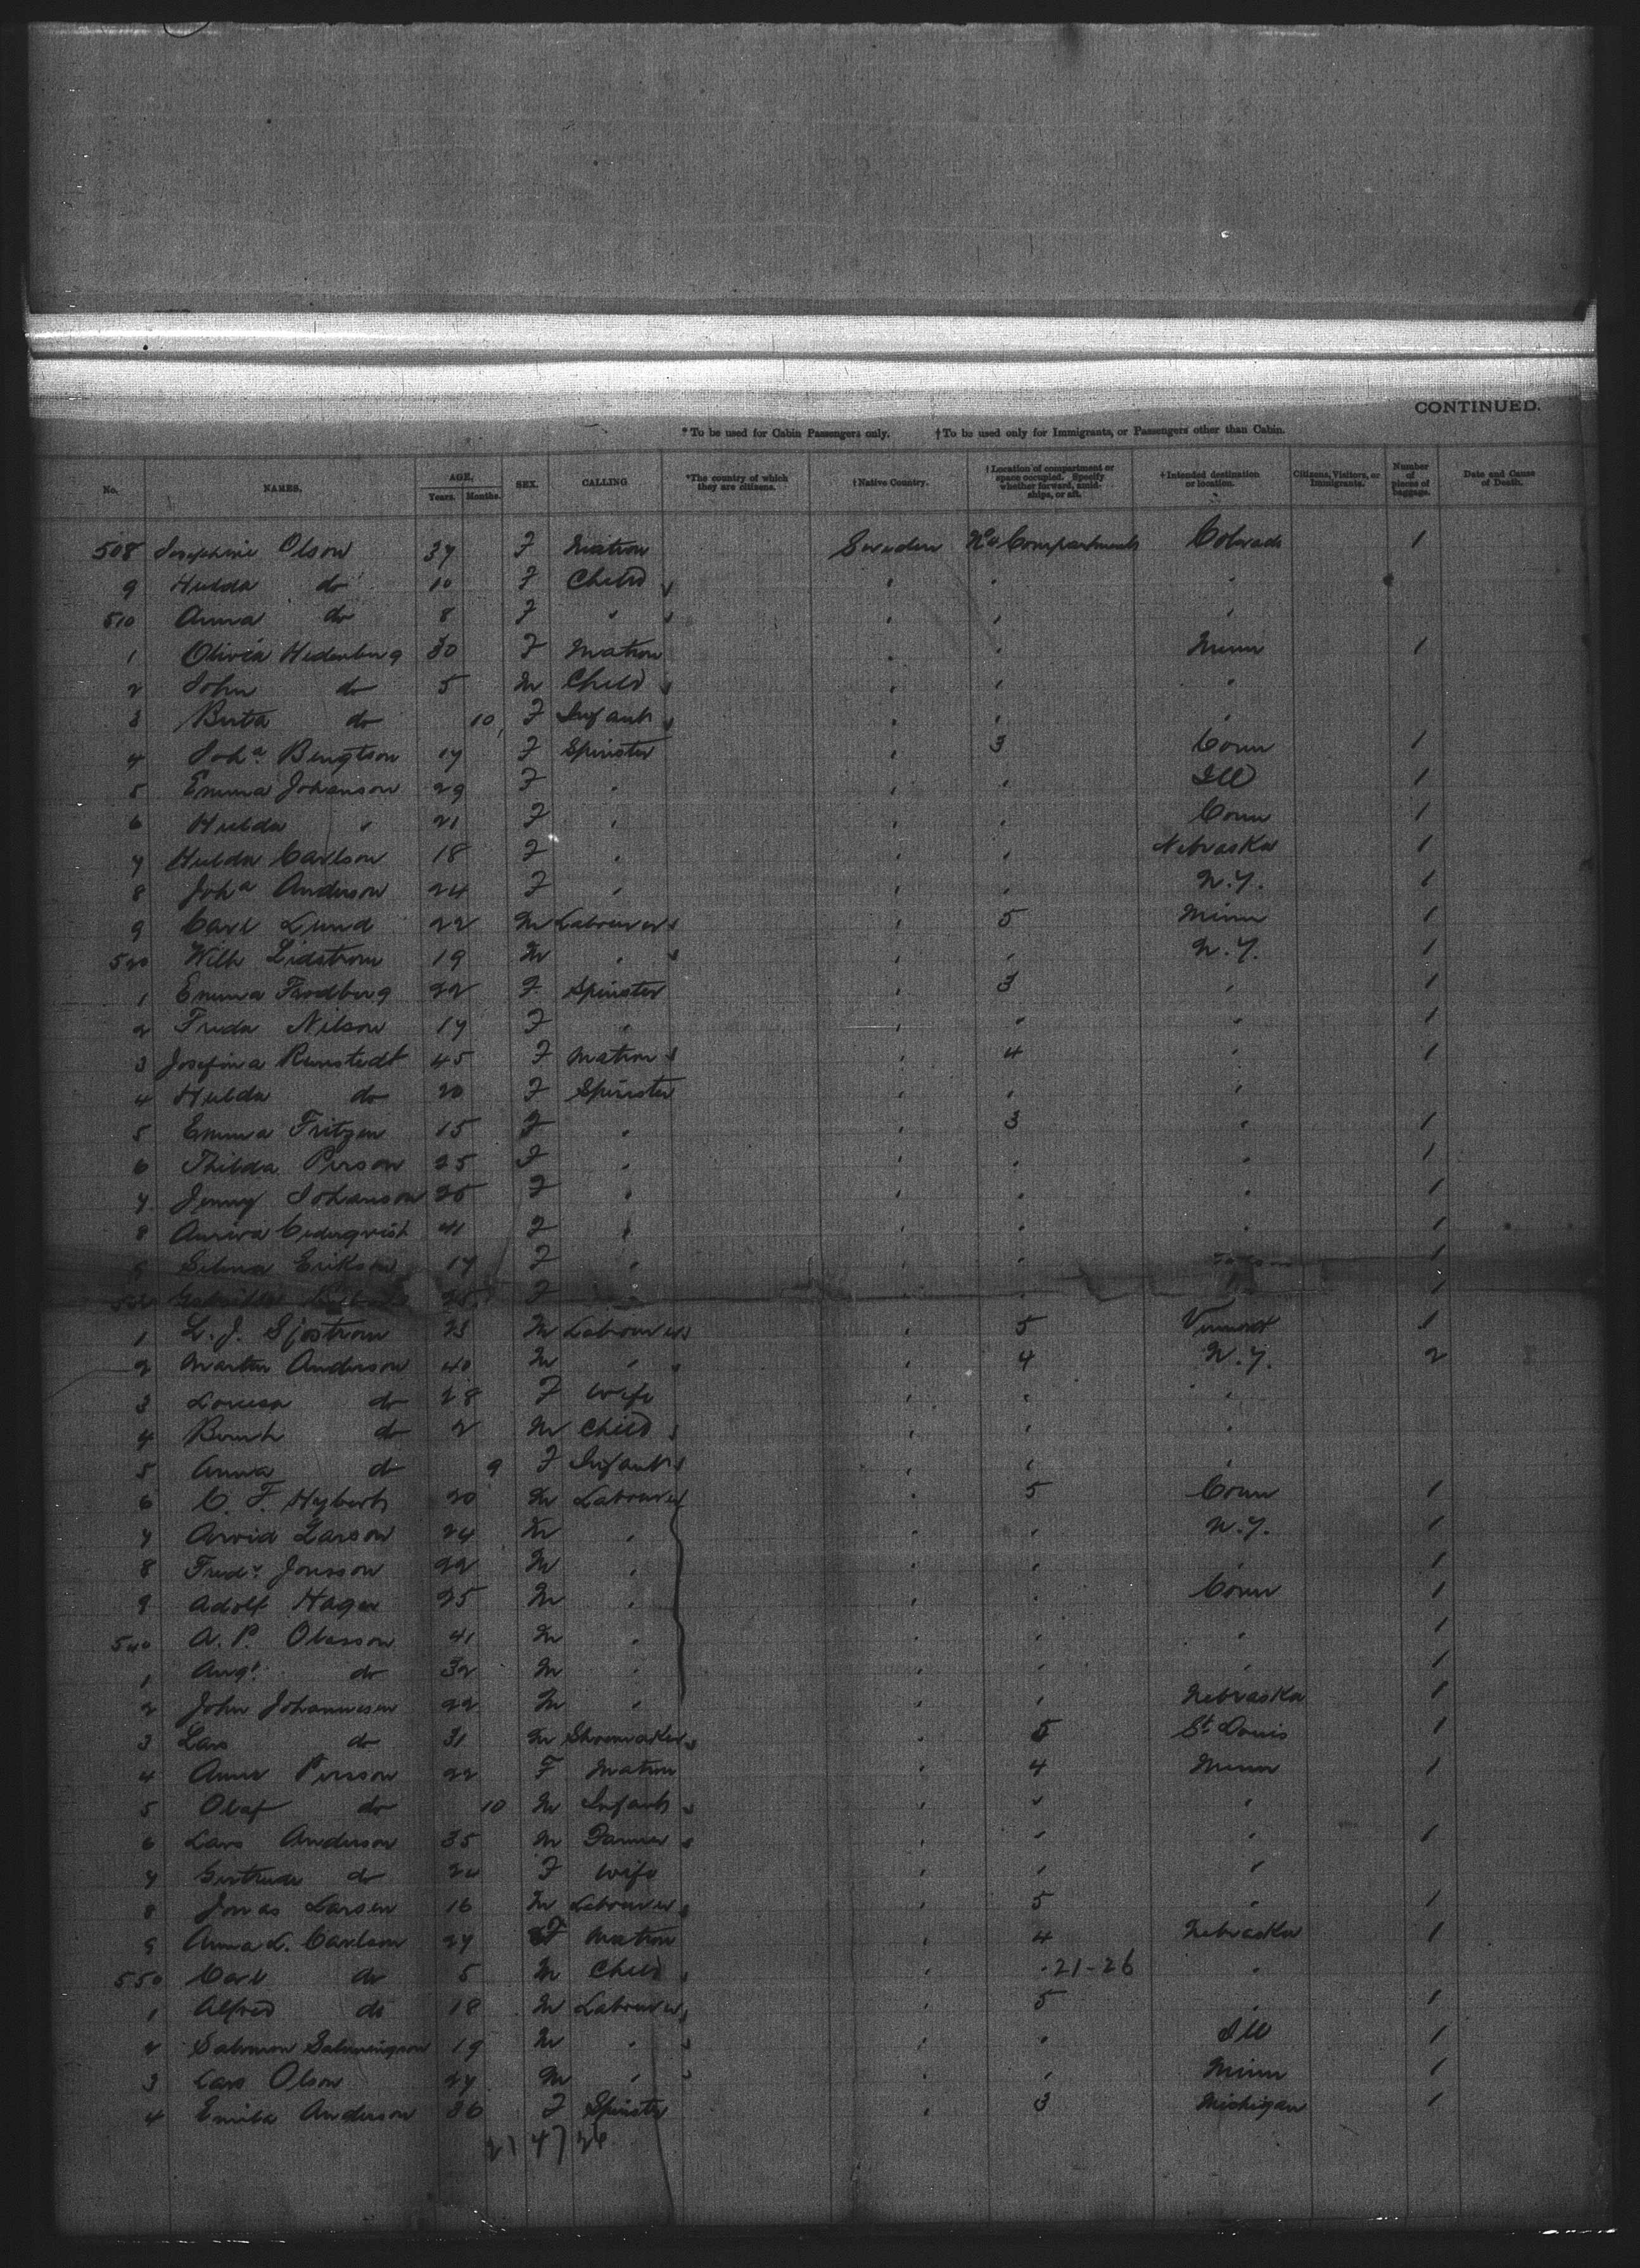 CONTINUED.
* To be used for Cabin Passengers only. † To be used only for Immigrants, or Passengers other than Cabin.
No. NAMES. AGE. Years. Months. SEX. CALLING *The country of which they are citizens. †Native Country. †Location of compartment or space occupied. Specify whether forward, amidships, or aft. †Intended destination or location. Citizens, Visitors, or Immigrants. Number of pieces of baggage. Date and Cause of Death.
508 Josephine Olson 37 F Matron Sweden No 4 Compartment Colorado 1
9 Hulda do 10 F Child
510 Anna do 8 F "
1 Olivia Hedenberg 30 F Matron " " Minn 1
2 John do 5 M Child " " "
3 Berta do 10 F Infant " " "
4 Joha Bengtson 17 F Spinster " 3 Conn 1
5 Emma Johanson 29 F " " " Ill 1
6 Hulda " 21 F " " " Conn 1
7 Hulda Carlson 18 F " " " Nebraska 1
8 Joha Anderson 24 F " " " N.Y. 1
9 Carl Lund 22 M Labourer " 5 Minn 1
520 Wilh Lidstrom 19 M " " " N.Y. 1
1 Emma 22 F Spinster " 3 " 1
2 Freda Nilson 17 F " " " " 1
3 Josefina Runstedt 45 F Matron " 4 " 1
4 Hulda do 20 F Spinster " " "
5 Emma Fritzen 15 F " " 3 " 1
6 Thilda Person 25 F " " " " 1
7 Jenny Johanson 25 F " " " " 1
8 Cederqvist 41 F " " " " 1
9 Selma Erikson 17 F " " " 1
530 F " " " 1
1 L. J. Sjostrom 23 M Labourer " 5 Vermont 1
2 Martin Anderson 40 M " " 4 N.Y. 2
3 Lovisa do 28 F Wife " " "
4 do 2 M Child " " "
5 Anna do 9 F Infant " " "
6 C. F. Hyberts 20 M Labourer " 5 Conn 1
7 Arvid Larson 24 M " " " N.Y. 1
8 Fredr. Jonsson 22 M " " " " 1
9 Adolf Hagen 25 M " " " Conn 1
540 A. P. Olasson 41 M " " " " 1
1 Augt. do 32 M " " " " 1
2 John Johannesen 22 M " " " Nebraska 1
3 Lars do 31 M Shoemaker " 5 St. Louis 1
4 Anna Persson 22 F Matron " 4 Minn 1
5 Olaf do 10 M Infant " " "
6 Lars Anderson 35 M Farmer " " " 1
7 Gertrude do F Wife " " "
8 Jonas Larsen 16 M Labourer " 5 " 1
9 Anna L. Carlson 27 F Matron " 4 Nebraska 1
550 Carl do 5 M Child " " 21-26 "
1 Alfred do 18 M Labourer " 5 " 1
2 Salomon 19 M " " " Ill 1
3 Lars Olson 27 M " " " Minn 1
4 Emila Anderson 36 F Spinster " 3 Michigan 1
21 47 26